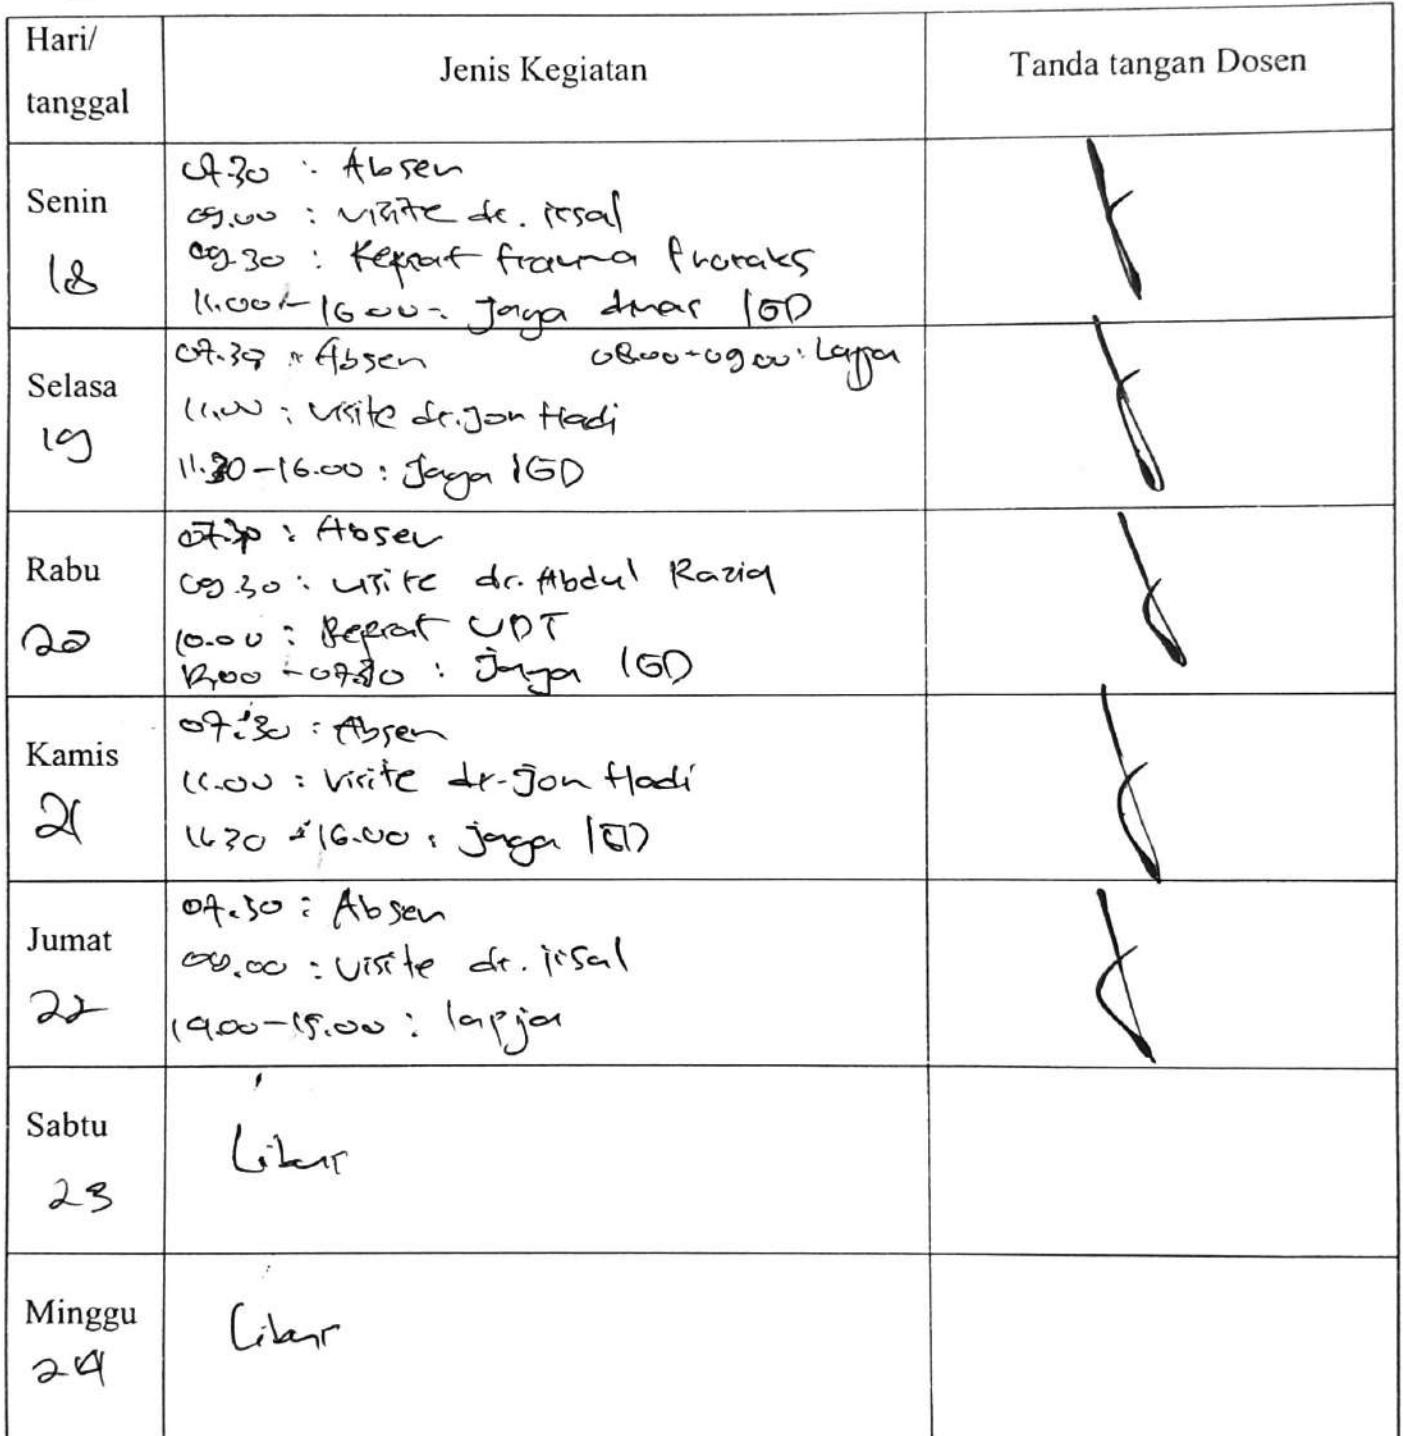 Hari/
tanggal
Jenis Kegiatan
Tanda tangan Dosen
Senin
18
07.30 : Absen
09.00 : visite dr. irsal
09.30 : Refrat trauma thoraks
11.00 - 16.00 : Jaga dinas IGD
Selasa
19
07.30 : Absen 08.00-09.00 : Lapja
11.00 : visite dr. Jon Hadi
11.30-16.00 : Jaga IGD
Rabu
20
07.30 : Absen
09.30 : visite dr. Abdul Raziq
10.00 : Refrat UDT
12.00 - 07.30 : Jaga IGD
Kamis
21
07.30 : Absen
11.00 : visite dr. Jon Hadi
11.30 - 16.00 : jaga IGD
Jumat
22
07.30 : Absen
: visite dr. irsal
14.00-15.00 : lapja
Sabtu
23
Libur
Minggu
24
Libur